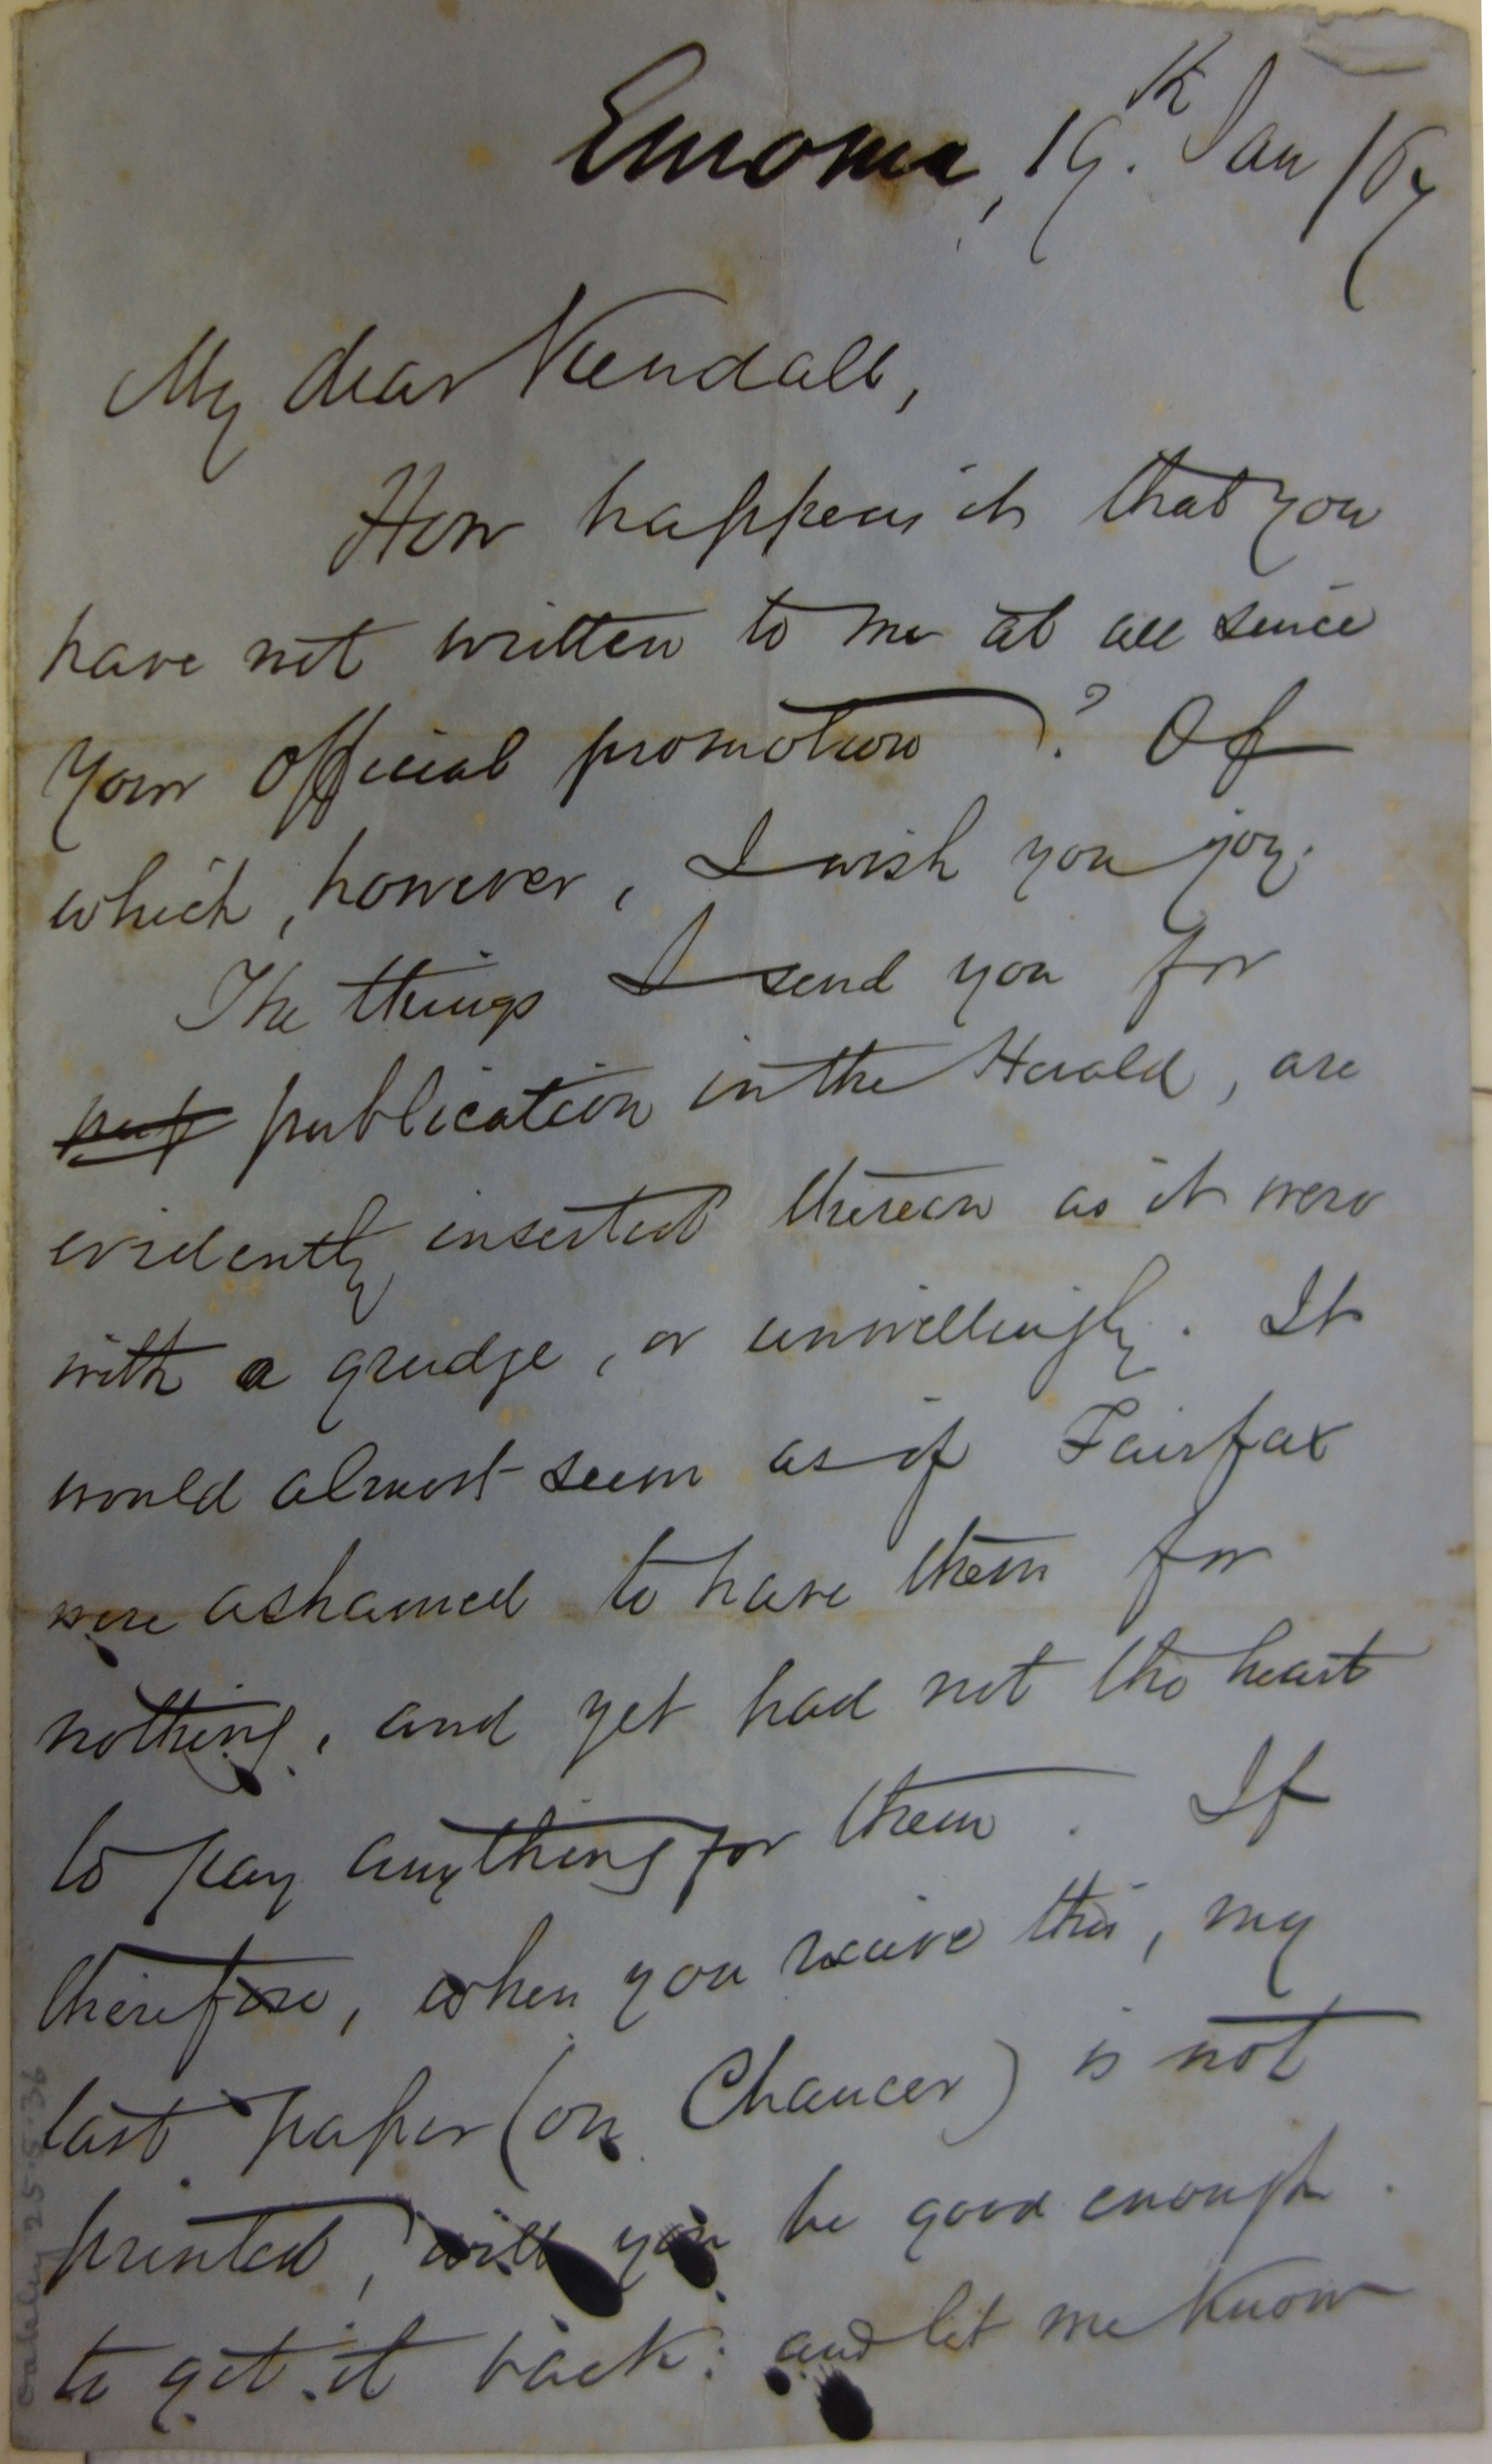 Euroma, 19th Jan /67
My dear Kendall,
How happens it that you
have not written to me at all since
your official promotion? Of
which, however, I wish you joy.
The things I send you for
publication in the Herald, are
evidently inserted therein as it were
with a grudge, or unwillingly. It
would almost seem as if Fairfax
were ashamed to have them for
nothing, and yet had not the heart
to pay anything for them. If
therefore, when you receive this, my
last paper (on Chaucer) is not
printed, will you be good enough
to get it back: and let me know
25.5.36